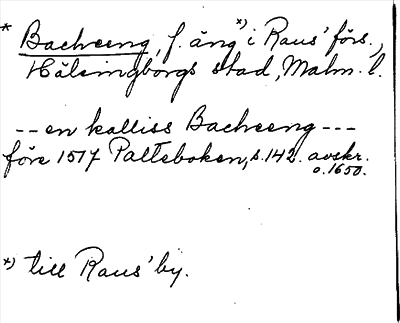 * Bacheeng, f. äng *) i Raus' förs.,
Hälsingborgs stad, Malm. l.
-- en kalliss Bacheeng ---
före 1517 Palteboken, s. 142. avskr.
o. 1650.
*) till Raus' by.